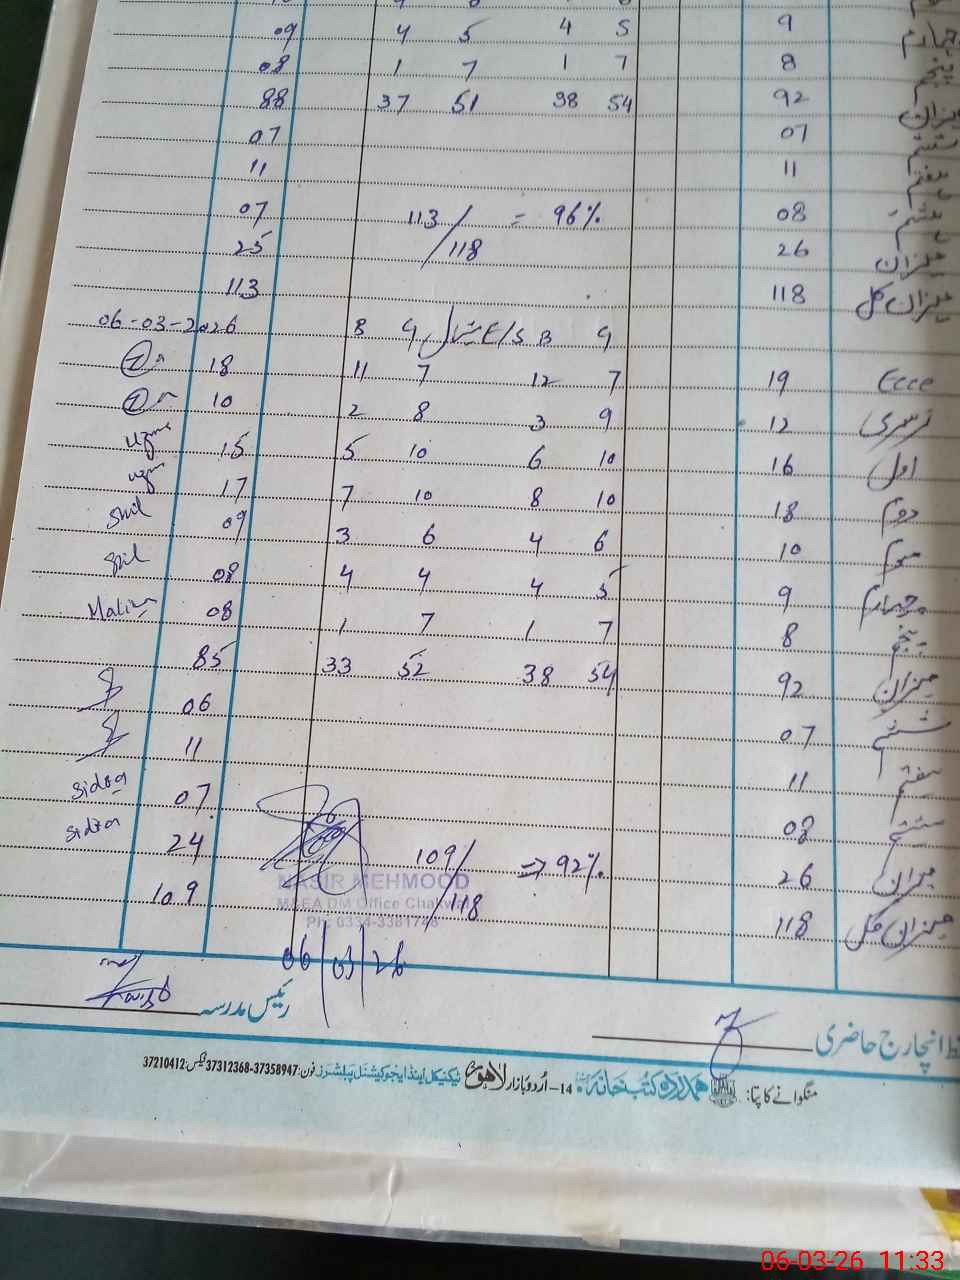 09 4 5 4 5 9 چہارم
08 1 7 1 7 8 پنجم
88 37 51 38 54 92 میزان
07 07 ششم
11 11 ہفتم
07 113/118 = 96% 08 ہشتم
25 26 میزان
113 118 میزان کل
06-03-2026 B G E/S B G
18 11 7 12 7 19 Ecce
10 2 8 3 9 12 نرسری
15 5 10 6 10 16 اول
17 7 10 8 10 18 دوم
09 3 6 4 6 10 سوم
08 4 4 4 5 9 چہارم
Malim 08 1 7 1 7 8 پنجم
85 33 52 38 54 92 میزان
06 07 ششم
11 11 ہفتم
Sidra 07 08 ہشتم
Sidra 24 109/118 => 92% 26 میزان
109 118 میزان کل
NASIR MEHMOOD
MEEA DM Office Chakwal
Ph: 0334-3381748
06/03/26
رئیس مدرسہ
انچارج حاضری
منگوانے کا پتا: ہمدرد کتب خانہ 14-اُردو بازار لاہور ٹیکنیکل اینڈ ایجوکیشنل پبلشرز فون: 37358947-37312368 فیکس: 37210412
06-03-26 11:33